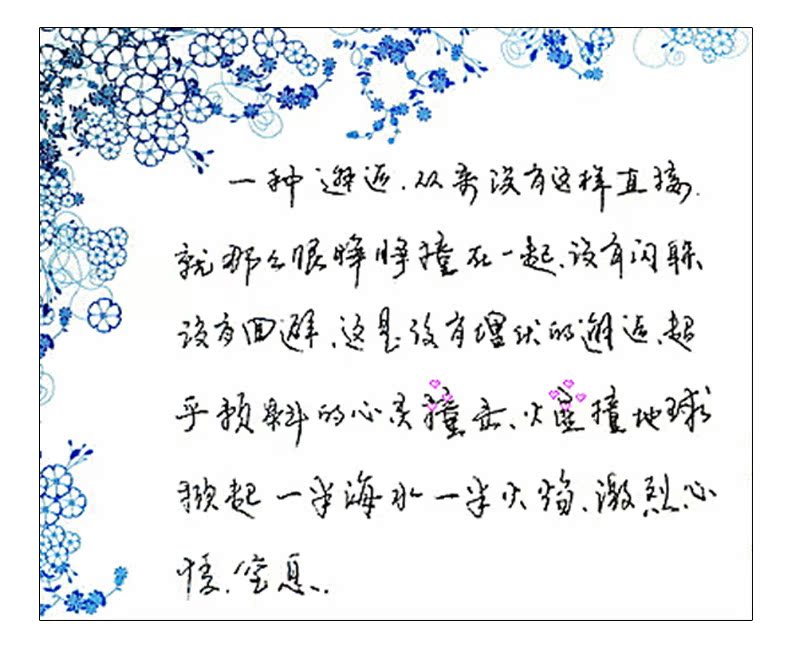 一种邂逅.从来没有这样直接.
就那么眼睁睁撞在一起、没有闪躲
没有回避、这是没有埋伏的邂逅、超
乎预料的心灵撞击、火星撞地球
掀起一半海水一半火焰、激烈心
悸、窒息..